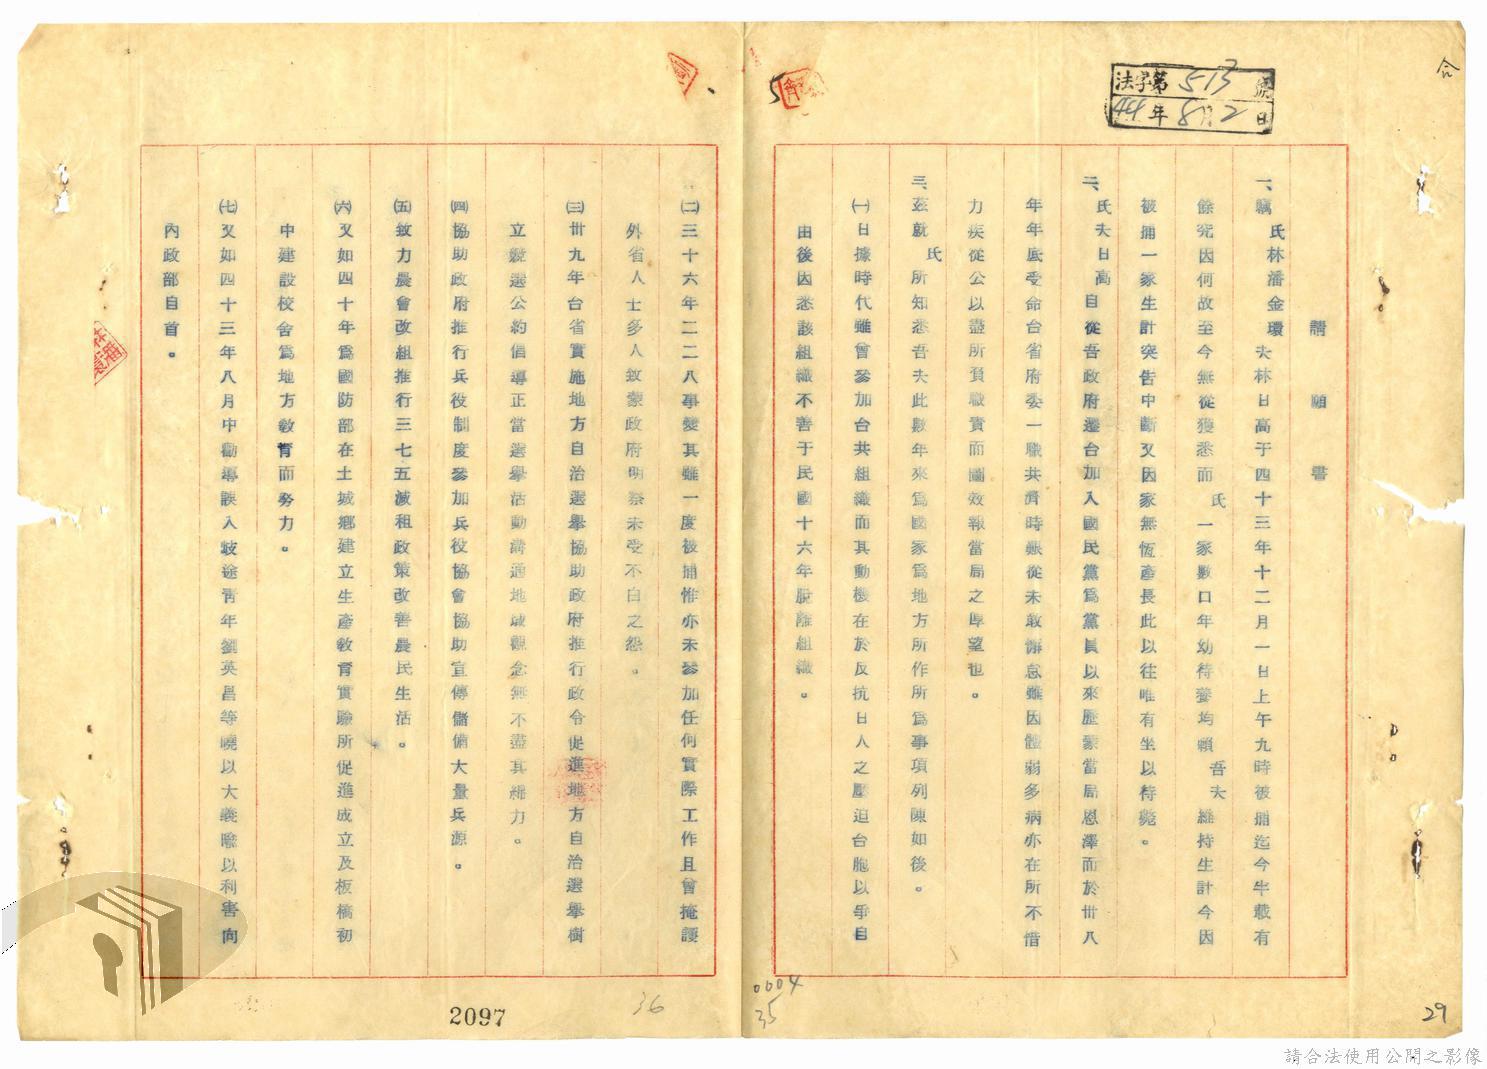 法字第513號
44年8月2日
請願書
一、竊氏林潘金環夫林日高于四十三年十二月一日上午九時被捕迄今半載有
餘究因何故至今無從獲悉而氏一家數口年幼待養均賴吾夫維持生計今因
被捕一家生計突告中斷又因家無恆產長此以往唯有坐以待斃。
二、氏夫日高自從吾政府遷台加入國民黨為黨員以來歷蒙當局恩澤而於卅八
年年底受命台省府委一職共濟時艱從未敢懈怠雖因體弱多病亦在所不惜
力疾從公以盡所負職責而圖效報當局之厚望也。
三、茲就氏所知悉吾夫此數年來為國家為地方所作所為事項列陳如後。
㈠日據時代雖曾參加台共組織而其動機在於反抗日人之壓迫台胞以爭自
由後因悉該組織不善于民國十六年脫離組織。
㈡三十六年二二八事變其雖一度被捕惟亦未參加任何實際工作且曾掩護
外省人士多人故蒙政府明察未受不白之怨。
㈢卅九年台省實施地方自治選舉協助政府推行政令促進地方自治選舉樹
立競選公約倡導正當選舉活動溝通地域觀念無不盡其綿力。
㈣協助政府推行兵役制度參加兵役協會協助宣傳儲備大量兵源。
㈤致力農會改組推行三七五減租政策改善農民生活。
㈥又如四十年為國防部在土城鄉建立生產教育實驗所促進成立及板橋初
中建設校舍為地方教育而努力。
㈦又如四十三年八月中勸導誤入歧途青年劉英昌等曉以大義喻以利害向
內政部自首。
2097
36
0004
35
29
請合法使用公開之影像